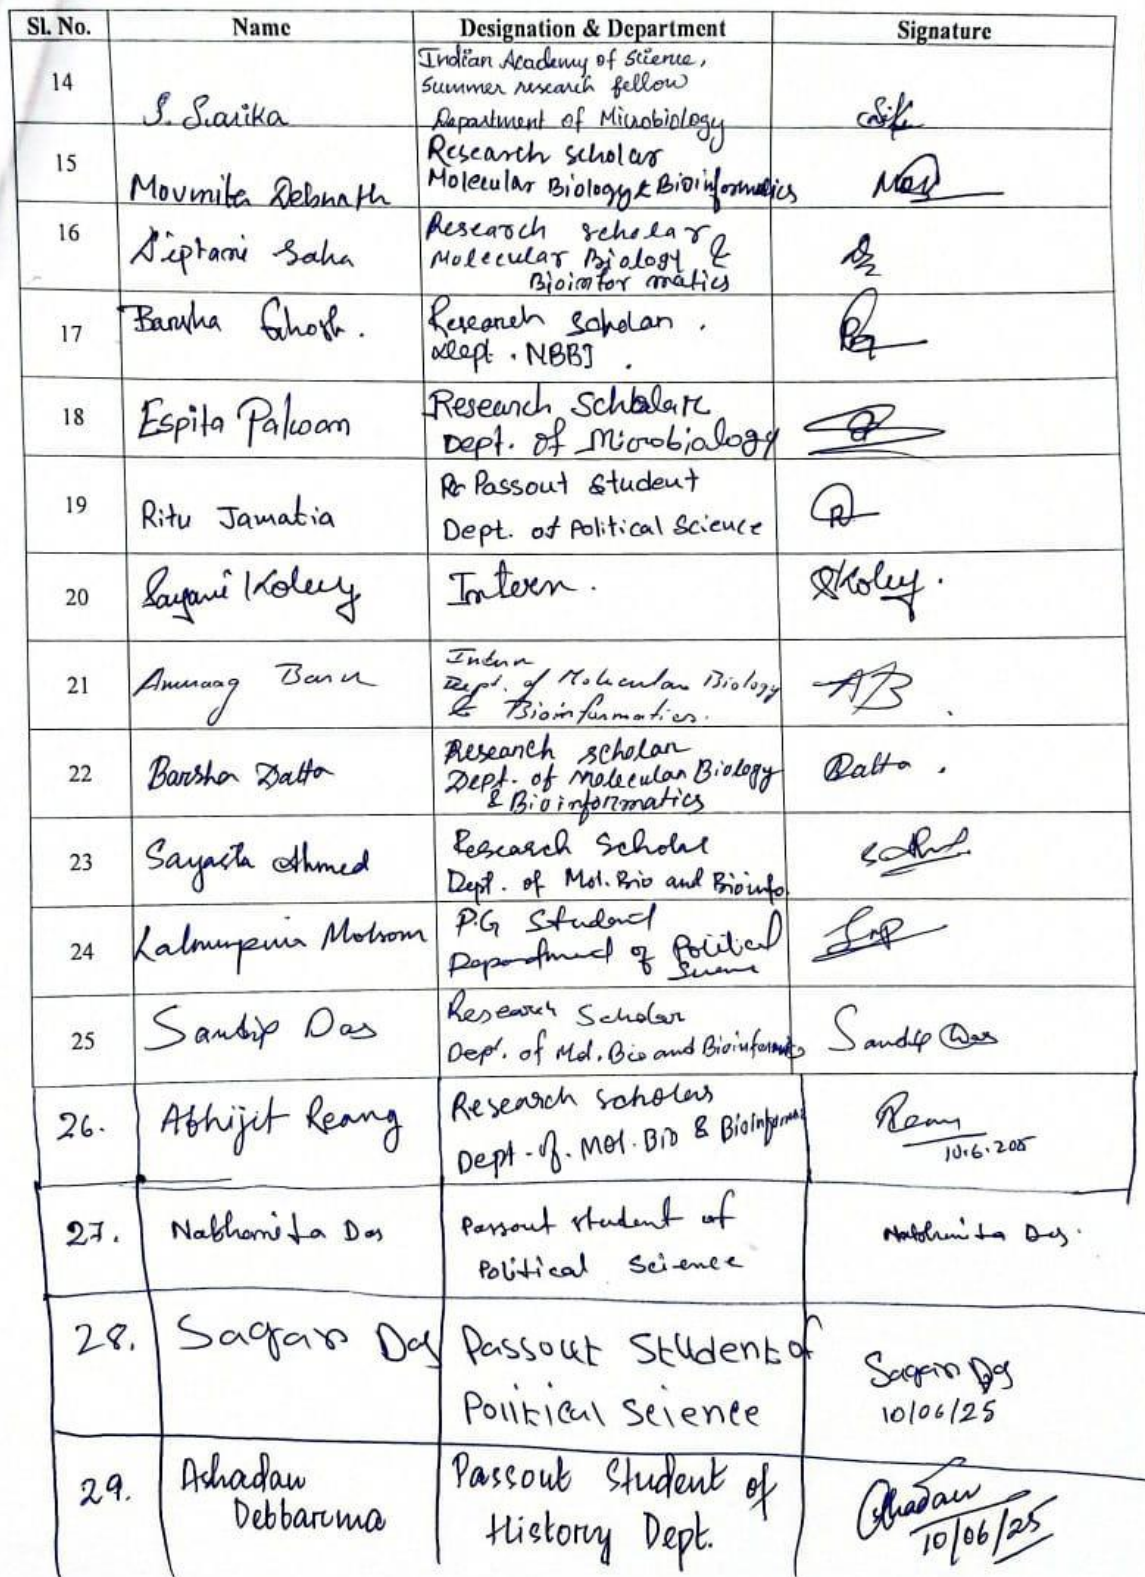 Sl. No. Name Designation & Department Signature
14 S. Sarika Indian Academy of Science,
Summer research fellow
Department of Microbiology
15 Moumita Debnath Research scholar
Molecular Biology & Bioinformatics
16 Diptami Saha Research scholar
Molecular Biology &
Bioinformatics
17 Barsha Ghosh. Research Scholar.
Dept. NBBI.
18 Espita Research Scholar
Dept. of Microbialogy
19 Ritu Jamatia Passout Student
Dept. of Political Science
20 Sayani Koley Intern. SKoley.
21 Anuraag Intern
Dept. of Molecular Biology
& Bioinformatics.
AB
22 Barsha Datta Research scholar
Dept. of Molecular Biology
& Bioinformatics
Datta.
23 Sayasta Ahmed Research Scholar
Dept. of Mol. Bio and Bioinfo
24 Molsom P.G Student
Department of Political
Science
25 Sandip Das Research Scholar
Dept. of Mol. Bio and Bioinformatics
Sandip Das
26. Abhijit Reang Research scholar
Dept. of. Mol. Bio & Bioinformati
Reang
10.6.205
27. Nabhanita Das Passout student of
Political Science
Nabhanita Das.
28. Sagar Das Passout Student of
Political Science
Sagar Das
10/06/25
29. Ashadau
Debbarma
Passout Student of
History Dept.
Ashadau
10/06/25